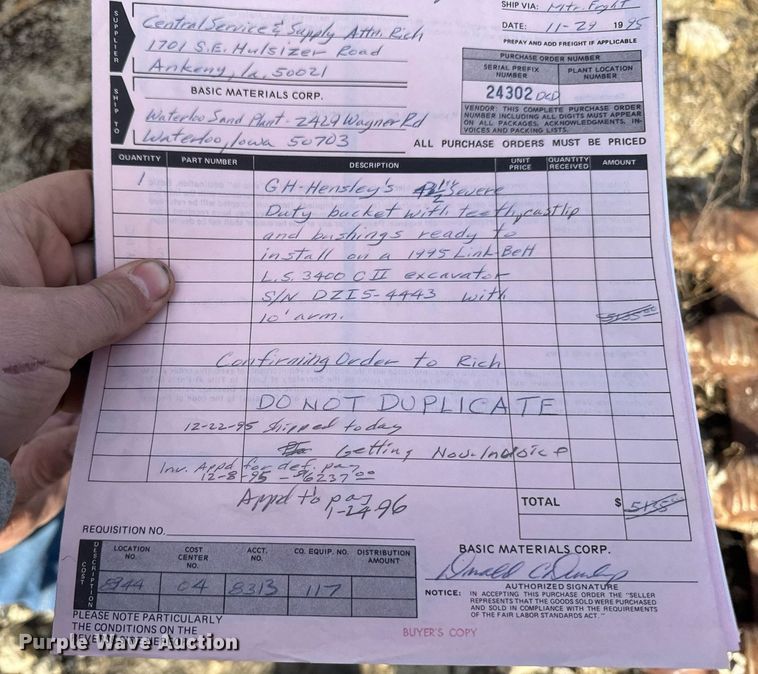 SHIP VIA: Mtr. Frght
SUPPLIER
Central Service & Supply Attn. Rich
DATE: 11-29 1995
1701 S.E. Hulsizer Road
PREPAY AND ADD FREIGHT IF APPLICABLE
Ankeny, Ia. 50021
PURCHASE ORDER NUMBER
SERIAL PREFIX NUMBER
PLANT LOCATION NUMBER
24302 DCD
SHIP TO
BASIC MATERIALS CORP.
Waterloo Sand Plant - 2429 Wagner Rd
Waterloo, Iowa 50703
VENDOR: THIS COMPLETE PURCHASE ORDER
NUMBER INCLUDING ALL DIGITS MUST APPEAR
ON ALL PACKAGES, ACKNOWLEDGMENTS, IN-
VOICES AND PACKING LISTS.
ALL PURCHASE ORDERS MUST BE PRICED
QUANTITY PART NUMBER DESCRIPTION UNIT PRICE QUANTITY RECEIVED AMOUNT
1 GH-Hensley's Severe
Duty bucket with teeth, cast lip
and bushings ready to
install on a 1995 Link-Belt
L.S. 3400 C II excavator
S/N DZI5-4443 with
10' arm.
Confirming Order to Rich
DO NOT DUPLICATE
12-22-95 Shipped today
Getting New Invoice
Inv. Appd for def. pay
12-8-95 - $6237.00
Appd to pay
1-24-96
TOTAL $
REQUISITION NO.
COST DESCRIPTION
LOCATION NO. COST CENTER NO. ACCT. NO. CO. EQUIP. NO. DISTRIBUTION AMOUNT
8944 04 8313 117
BASIC MATERIALS CORP.
AUTHORIZED SIGNATURE
NOTICE: IN ACCEPTING THIS PURCHASE ORDER THE "SELLER
REPRESENTS THAT THE GOODS SOLD WERE PURCHASED
AND SOLD IN COMPLIANCE WITH THE REQUIREMENTS
OF THE FAIR LABOR STANDARDS ACT."
PLEASE NOTE PARTICULARLY
THE CONDITIONS ON THE
BUYER'S COPY
Purple Wave Auction